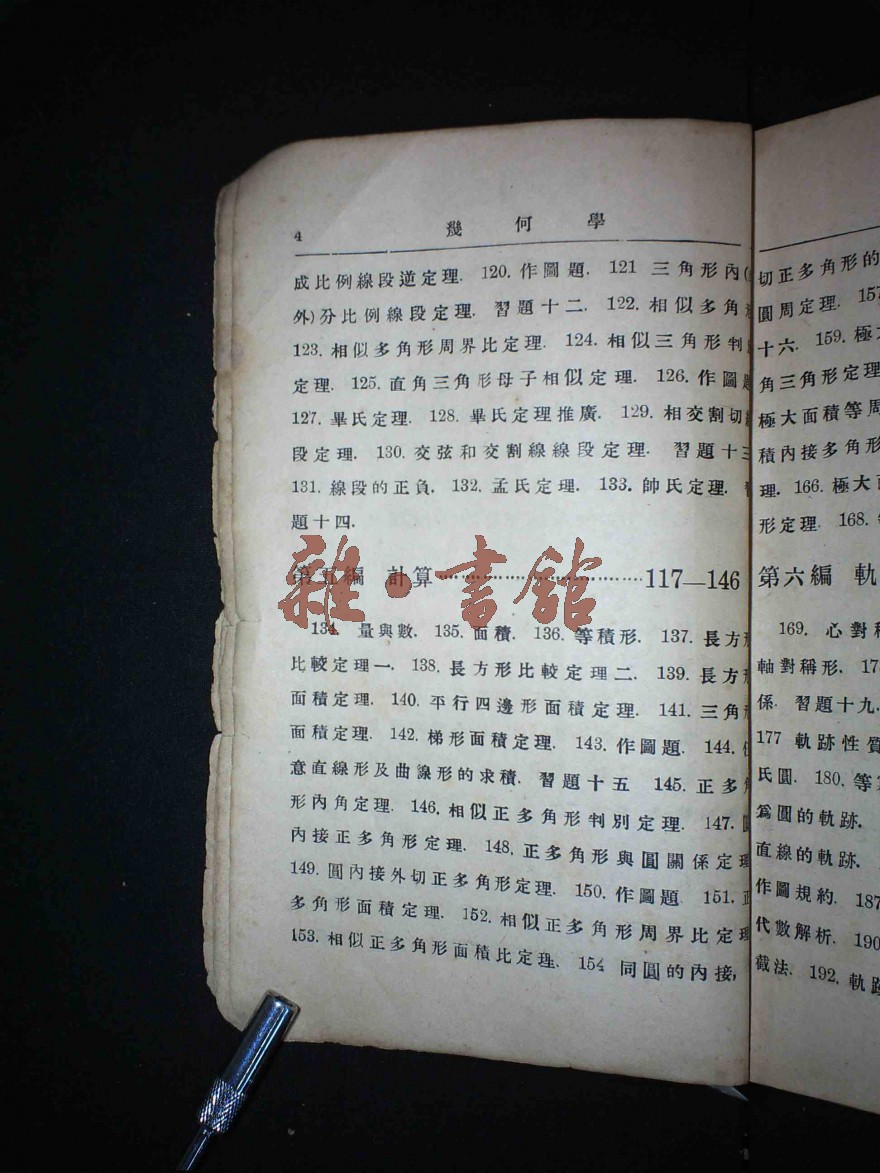 4 幾何學
成比例線段逆定理. 120. 作圖題. 121 三角形內(
外)分比例線段定理. 習題十二. 122. 相似多角
123. 相似多角形周界比定理. 124. 相似三角形判
定理. 125. 直角三角形母子相似定理. 126. 作圖
127. 畢氏定理. 128. 畢氏定理推廣. 129. 相交割切
段定理. 130. 交弦和交割線線段定理. 習題十三
131. 線段的正負. 132. 孟氏定理. 133. 帥氏定理.
題十四.
第五編 計算 117—146
134. 量與數. 135. 面積. 136. 等積形. 137. 長方
比較定理一. 138. 長方形比較定理二. 139. 長方
面積定理. 140. 平行四邊形面積定理. 141. 三角
面積定理. 142. 梯形面積定理. 143. 作圖題. 144.
意直線形及曲線形的求積. 習題十五 145. 正多
形內角定理. 146. 相似正多角形判別定理. 147.
內接正多角形定理. 148. 正多角形與圓關係定理
149. 圓內接外切正多角形定理. 150. 作圖題. 151.
多角形面積定理. 152. 相似正多角形周界比定理
153. 相似正多角形面積比定理. 154 同圓的內接,
雜·書館
切正多角形的
圓周定理. 157
十六. 159. 極
角三角形定理
極大面積等周
積內接多角形
理. 166. 極大
形定理. 168.
第六編 軌
169. 心對稱
軸對稱形. 17
係. 習題十九.
177 軌跡性質
氏圓. 180. 等
為圓的軌跡.
直線的軌跡.
作圖規約. 187
代數解析. 190
截法. 192. 軌跡